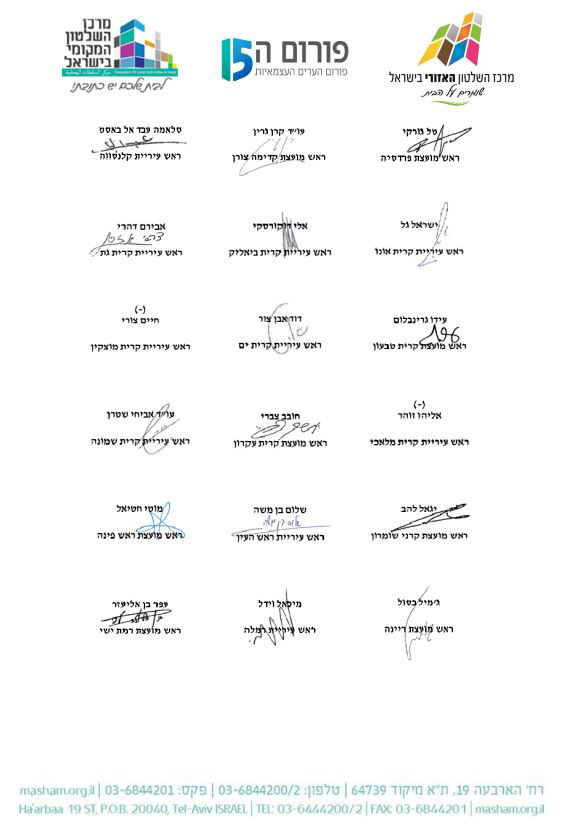 מרכז השלטון האזורי בישראל
שומרים על הבית
פורום ה 15
פורום הערים העצמאיות
מרכז
השלטון
המקומי
בישראל
Federation Of Local Authorities In Israel
לבית שלכם יש כתובת!
טל גורקי
ראש מועצת פרדסיה
עו״ד קרן גרין
ראש מועצת קדימה צורן
סלאמה עבד אל באסט
ראש עיריית קלנסווה
ישראל גל
ראש עיריית קרית אונו
אלי דוקורסקי
ראש עיריית קרית ביאליק
אבירם דהרי
ראש עיריית קרית גת
עידו גרינבלום
ראש מועצת קרית טבעון
דוד אבן צור
ראש עיריית קרית ים
(-)
חיים צורי
ראש עיריית קרית מוצקין
(-)
אליהו זוהר
ראש עיריית קרית מלאכי
חובב צברי
ראש מועצת קרית עקרון
עו״ד אביחי שטרן
ראש עיריית קרית שמונה
יגאל להב
ראש מועצת קרני שומרון
שלום בן משה
ראש עיריית ראש העין
מוטי חטיאל
ראש מועצת ראש פינה
ג׳מיל בסול
ראש מועצת ריינה
מיכאל וידל
ראש עיריית רמלה
עפר בן אליעזר
ראש מועצת רמת ישי
רח׳ הארבעה 19, ת״א מיקוד 64739 | טלפון: 03-6844200/2 | פקס: 03-6844201 | masham.org.il
Ha'arbaa 19 ST, P.O.B. 20040, Tel-Aviv ISRAEL | TEL: 03-6444200/2 | FAX: 03-6844201 | masham.org.il